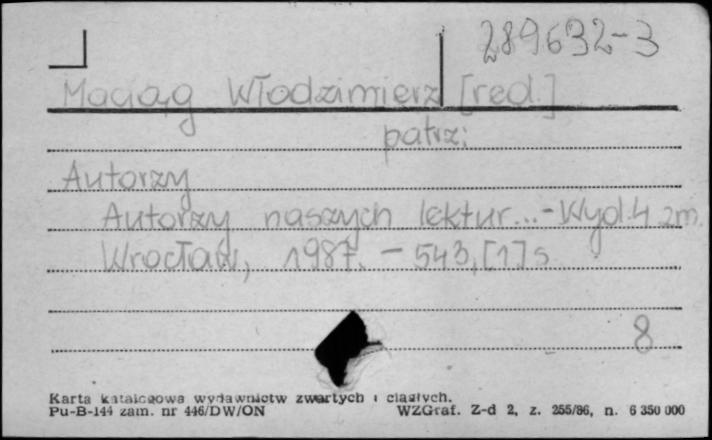 289632-3
Maciąg Włodzimierz [red.]
patrz:
Autorzy
Autorzy naszych lektur...-Wyd.4 zm.
Wrocław, 1987. - 543,[1]s
8
Karta katalogowa wydawnictw zwartych i ciągłych.
Pu-B-144 zam. nr 446/DW/ON WZGraf. Z-d 2, z. 255/86, n. 6 350 000